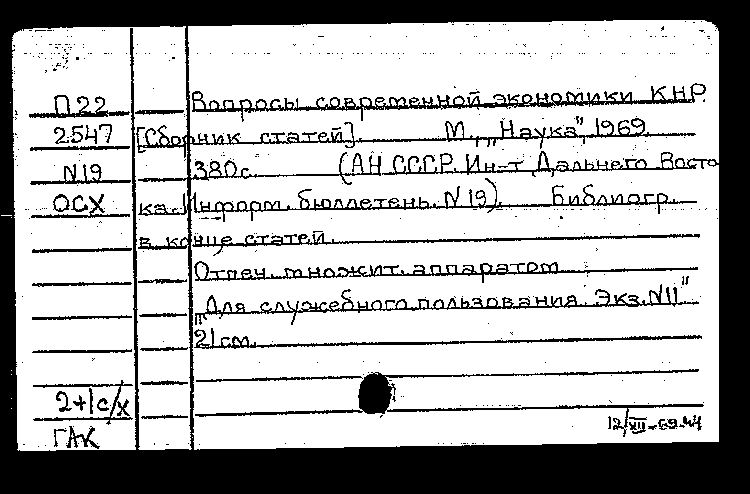 П22 Вопросы современной экономики КНР.
2547 [Сборник статей]. М., „Наука", 1969.
N19 380с. (АН СССР. Ин-т Дальнего Восто
ОСХ ка. Информ. бюллетень. N19). Библиогр.
в конце статей.
Отпеч. множит. аппаратом
„Для служебного пользования. Экз. N11"
21см.
2+1с/х
ГАК 12/XII-69.